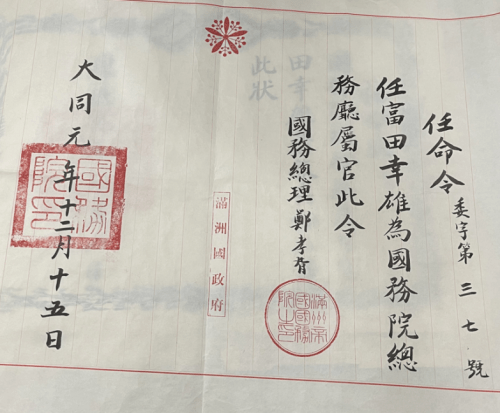 任命令 委字第三七號
任富田幸雄為國務院總
務廳屬官此令
國務總理鄭孝胥
滿洲國政府
大同元年十二月十五日
國務院印